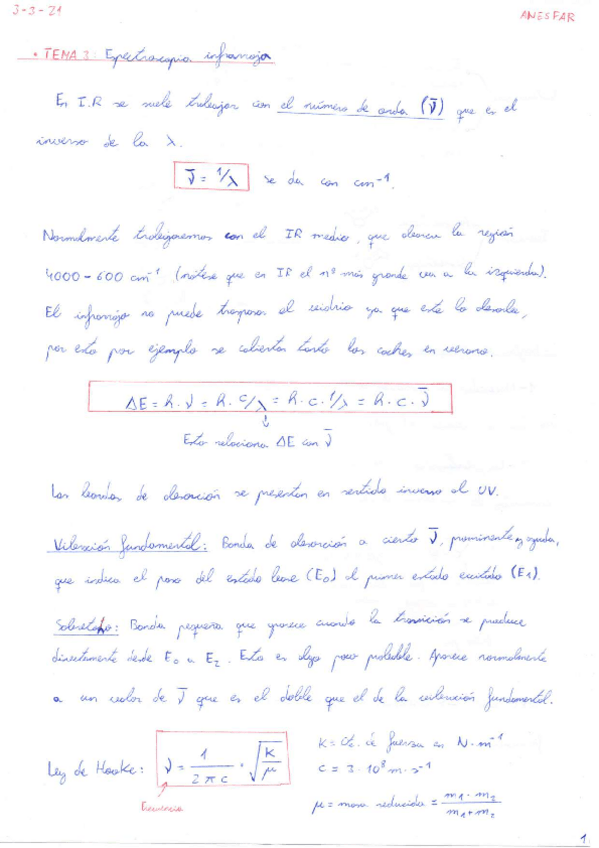 3-3-21
ANESFAR
• TEMA 3: Espectroscopia infrarroja
En I.R se suele trabajar con el número de onda (ν̄) que es el
inverso de la λ.
ν̄ = 1/λ se da con cm⁻¹.
Normalmente trabajaremos con el IR medio, que abarca la región
4000-600 cm⁻¹ (nótese que en IR el nº más grande va a la izquierda).
El infrarrojo no puede traspasar el vidrio ya que este lo absorbe,
por esto por ejemplo se calientan tanto los coches en verano.
ΔE = h·ν = h·c/λ = h·c·1/λ = h·c·ν̄
Esto relaciona ΔE con ν̄
Las bandas de absorción se presentan en sentido inverso al UV.
Vibración fundamental: Banda de absorción a cierto ν̄, prominente y aguda,
que indica el paso del estado base (E₀) al primer estado excitado (E₁).
Sobretono: Banda pequeña que aparece cuando la transición se produce
directamente desde E₀ a E₂. Esto es algo poco probable. Aparece normalmente
a un valor de ν̄ que es el doble que el de la vibración fundamental.
Ley de Hooke: ν = 1/2πc · √K/μ
Frecuencia
K = Cte. de fuerza en N·m⁻¹
c = 3·10⁸ m·s⁻¹
μ = masa reducida = m₁·m₂/m₁+m₂
1